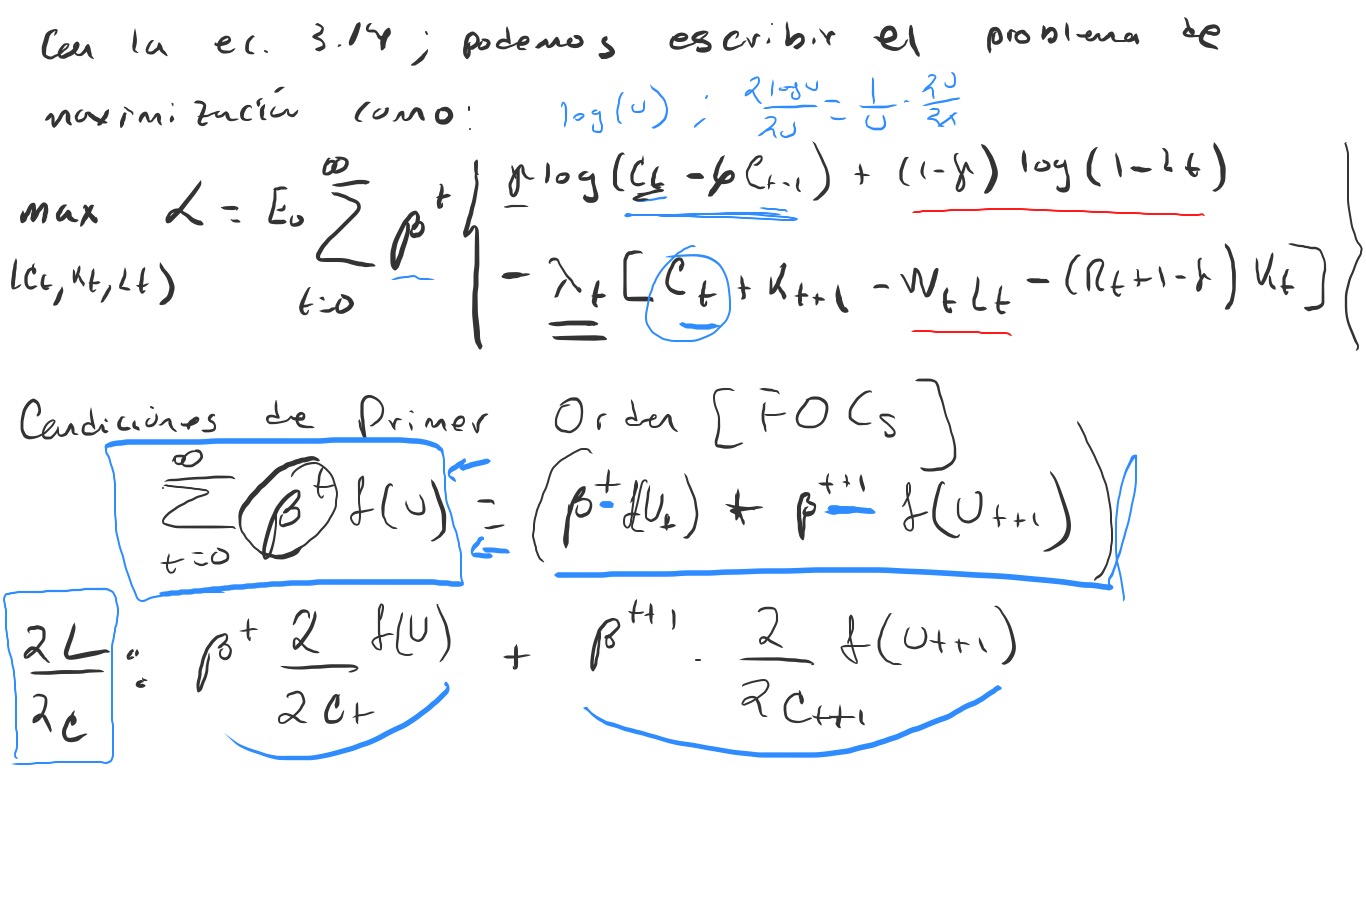 Con la ec. 3.14 ; podemos escribir el problema de
maximización como: log(u) ; ∂logu/∂u = 1/u · ∂u/∂x
max L = E₀ ∑_{t=0}^{∞} β^t { γ log(C_t - φC_{t-1}) + (1-γ) log(1-L_t)
(C_t, K_t, L_t) - λ_t [C_t + K_{t+1} - W_t L_t - (R_t+1-δ) K_t] }
Condiciones de Primer Orden [FOCs]
∑_{t=0}^{∞} β^t f(U) = (β^t f(U_t) + β^{t+1} f(U_{t+1}))
∂L/∂c : β^t ∂/∂C_t f(U) + β^{t+1} · ∂/∂C_{t+1} f(U_{t+1})